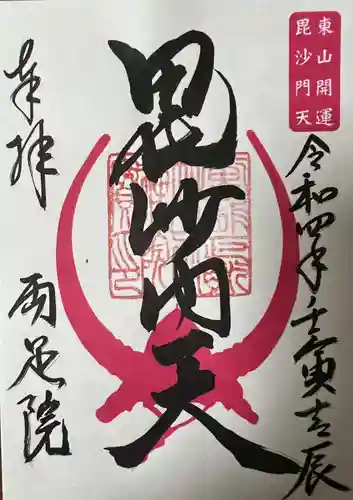 東山開運
毘沙門天
令和四年壬寅吉辰
毘沙門天
奉拝
両足院